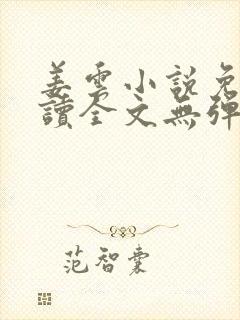 姜雲小說免
讀全文無彈
范智囊